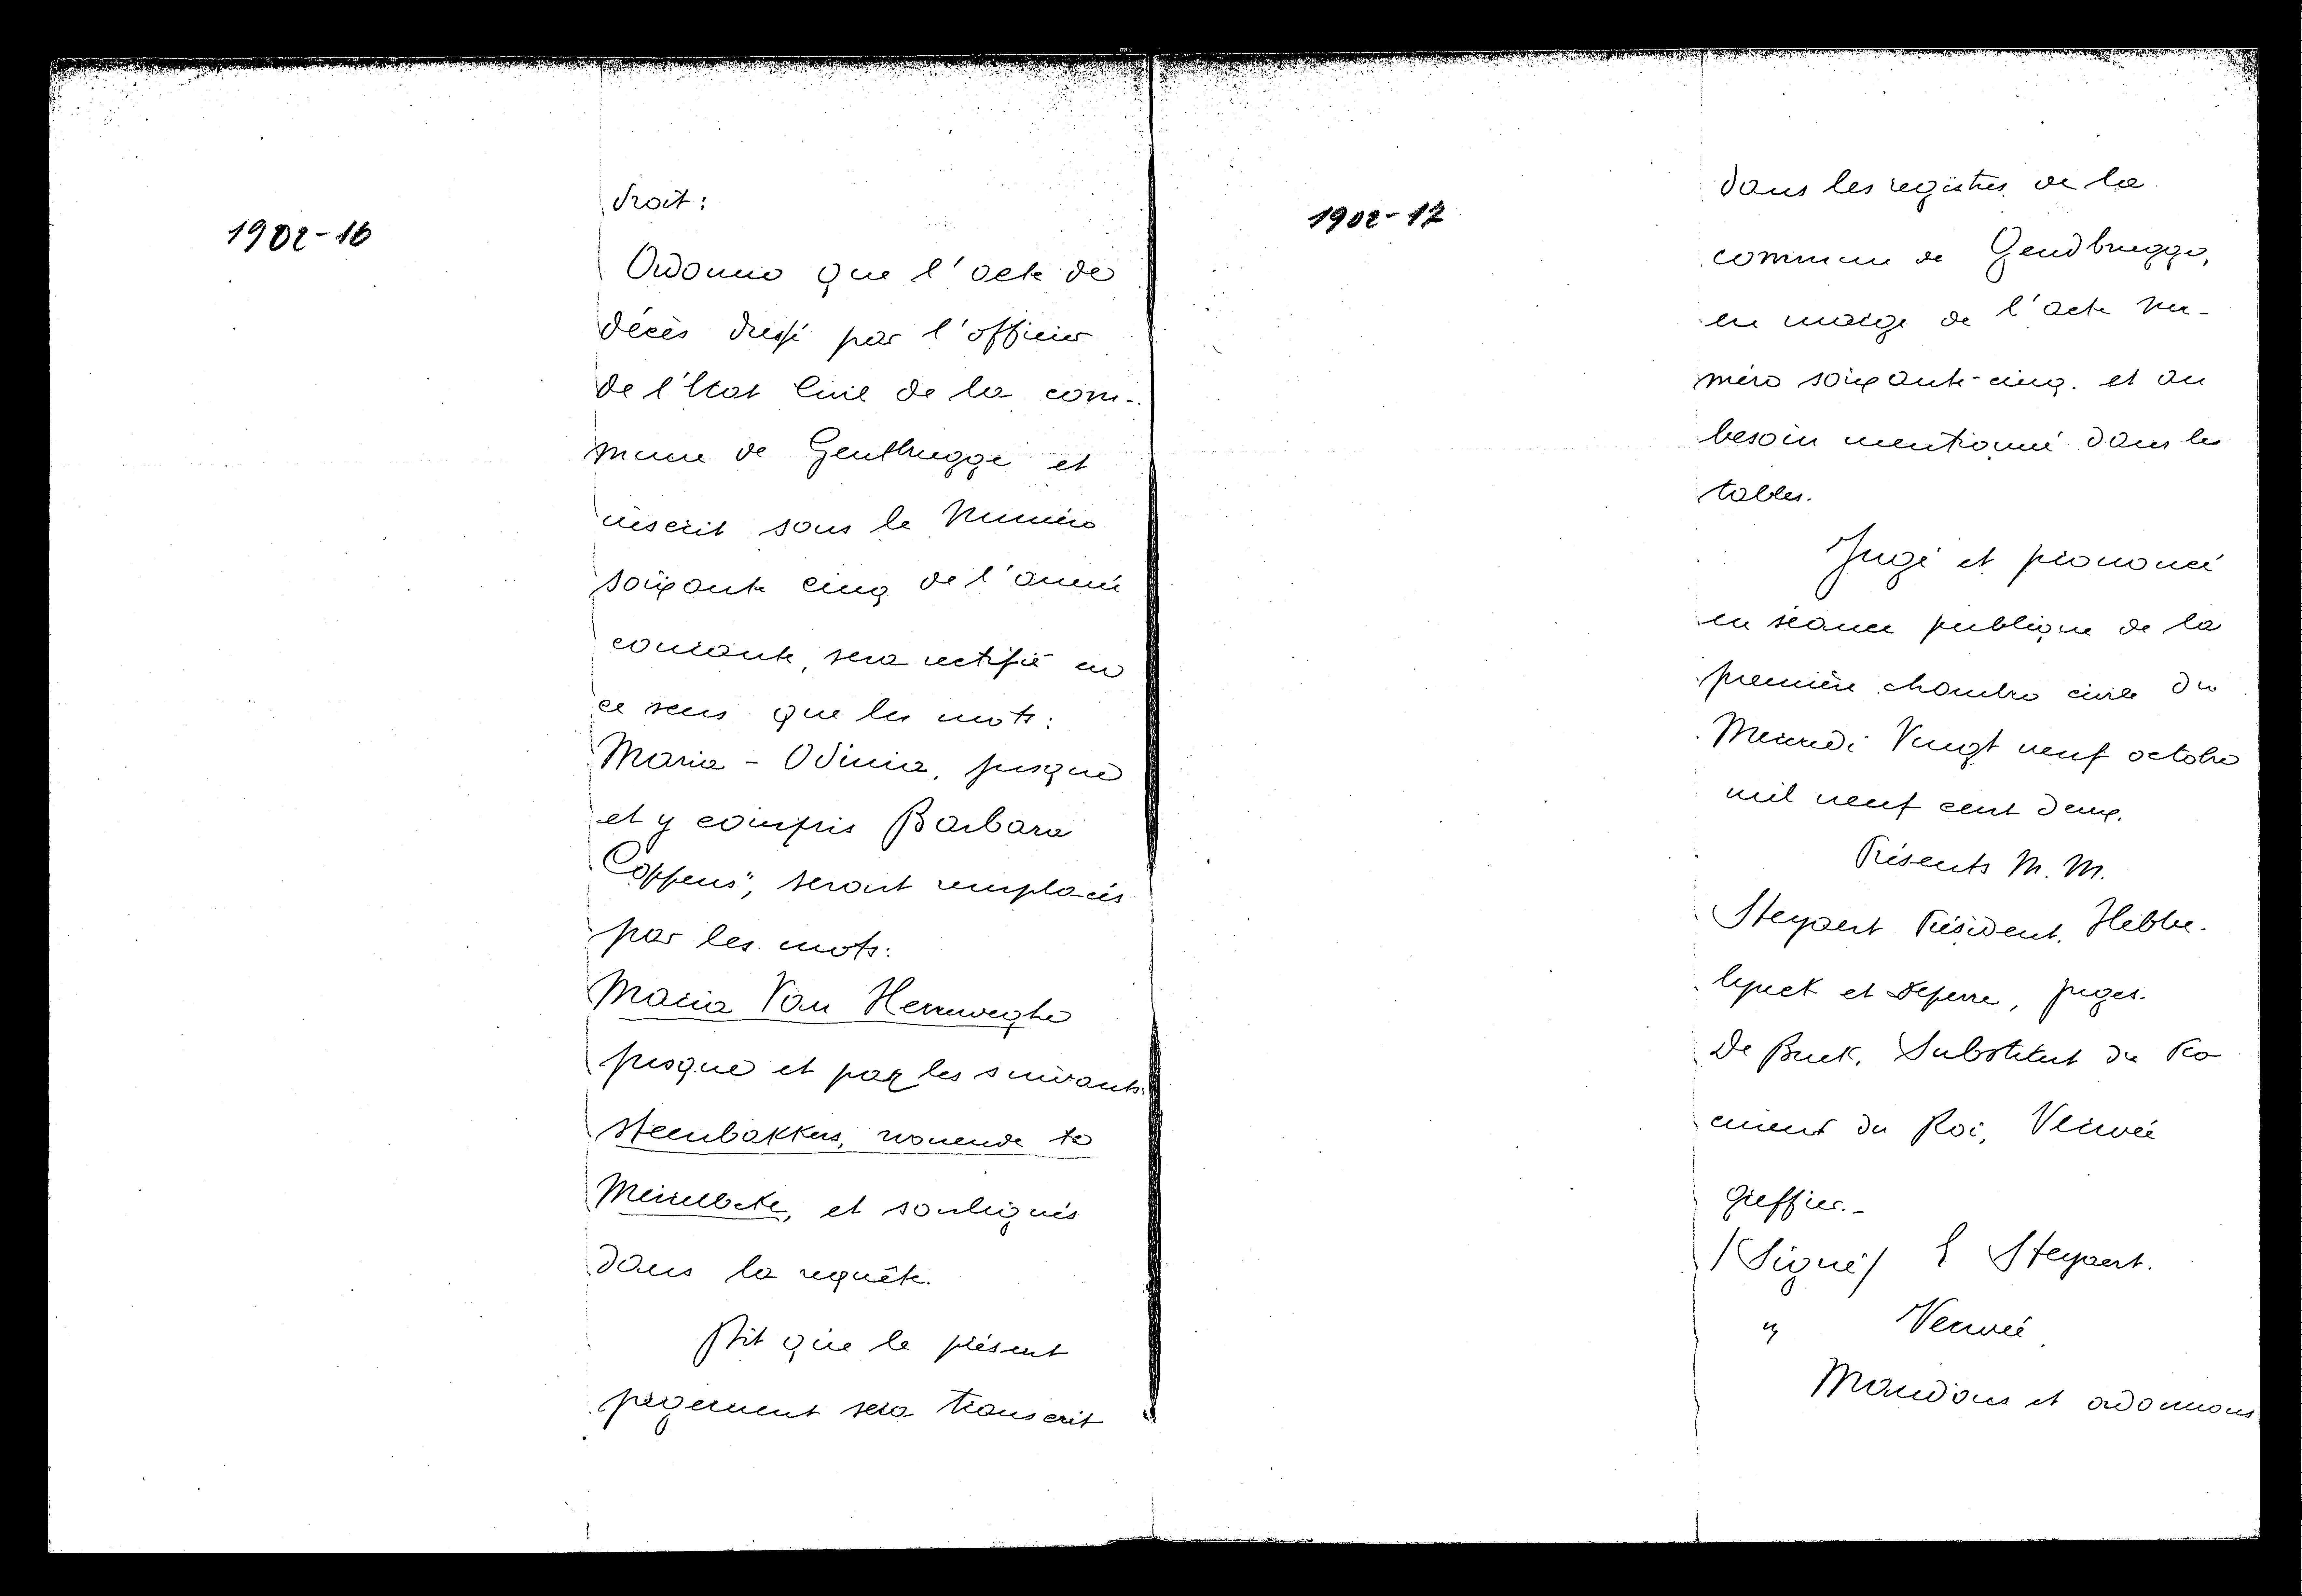 1902-16
droit:
Ordonne que l'acte de
décès dressé par l'officier
de l'Etat Civil de la com-
mune de Gentbrugge et
inscrit sous le Numéro
soixante cinq de l'année
courante, sera rectifié en
ce sens que les mots:
Maria - Odinia, jusque
et y compris Barbara
Coppens", seront remplacés
par les mots:
Maria Van Herreweghe
jusque et par les suivants:
steenbakkers, wonende te
Meirelbeke, et soulignés
dans la requête.
Dit que le présent
jugement sera transcrit
1902-17
dans les registres de la
commune de Gendbrugge,
en marge de l'acte nu-
méro soixante-cinq. et au
besoin mentionné dans les
tables.
Jugé et prononcé
en séance publique de la
première chambre civile du
Mercredi Vingt neuf octobre
mil neuf cent deux.
Présents M. M.
Steyaert Président, Hebbe-
lynck et Deperre, juges.
De Buck, Substitut du Pro
cureur du Roi, Verwée
greffier.-
/Signé/ E Steyaert.
" Verwée.
Mandons et ordonnons